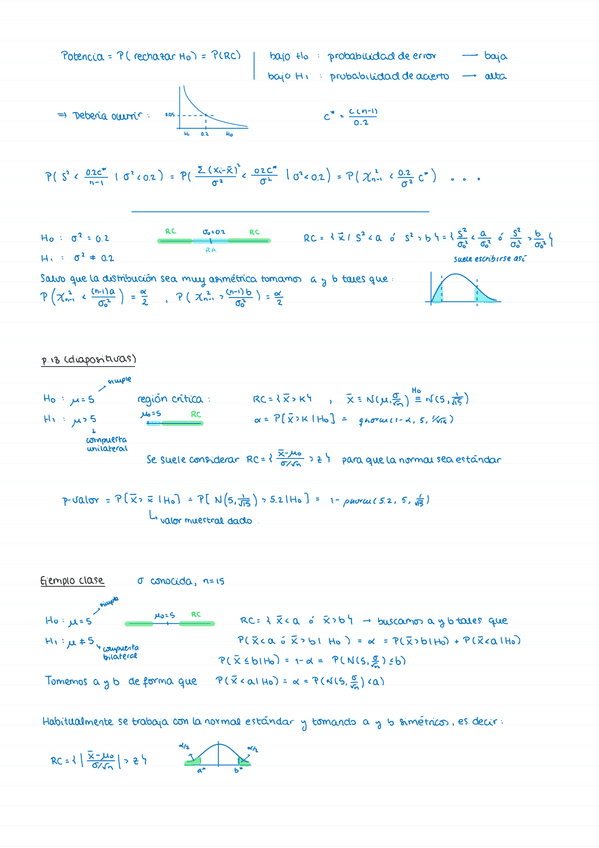 Potencia = P( rechazar H₀) = P(RC) | bajo H₀ : probabilidad de error → baja
bajo H₁ : probabilidad de acierto → alta
⇒ Debería ocurrir :
0.05
H₁ 0.2 H₀
c* = c(n-1)/0.2
P( S² < 0.2c*/(n-1) | σ² < 0.2 ) = P( Σ(xi-x̄)²/σ² < 0.2c*/σ² | σ² < 0.2 ) = P( χ²ₙ₋₁ < 0.2/σ² c* ) . . .
H₀ : σ² = 0.2
H₁ : σ² ≠ 0.2
RC σ₀=0.2 RC
RC = { x̄ / S² < a ó S² > b } = { S²/σ₀² < a/σ₀² ó S²/σ₀² > b/σ₀² }
suele escribirse así
Salvo que la distribución sea muy asimétrica tomamos a y b tales que :
P( χ²ₙ₋₁ < (n-1)a/σ₀² ) = α/2 , P( χ²ₙ₋₁ > (n-1)b/σ₀² ) = α/2
p.13 (diapositivas)
simple
H₀ : μ = 5
H₁ : μ > 5
compuesta
unilateral
región crítica :
μ₀=5 RC
RC = { x̄ > K } , x̄ ≡ N(μ, σ/√n) ≡ N(5, 1/√15)
H₀
α = P[ x̄ > K | H₀ ] = qnorm(1-α, 5, 1/√15)
Se suele considerar RC = { (x̄-μ₀)/(σ/√n) > z } para que la normal sea estándar
p-valor = P[ x̄ > x̄ | H₀ ] = P[ N(5, 1/√15) > 5.2 | H₀ ] = 1- pnorm(5.2, 5, 1/√15)
valor muestral dado
Ejemplo clase σ conocida, n=15
simple
H₀ : μ = 5
H₁ : μ ≠ 5
compuesta
bilateral
μ₀=5 RC
RC = { x̄ < a ó x̄ > b } → buscamos a y b tales que
P( x̄ < a ó x̄ > b | H₀ ) = α = P( x̄ > b | H₀ ) + P( x̄ < a | H₀ )
P( x̄ ≤ b | H₀ ) = 1-α = P( N(5, σ/√n) ≤ b )
Tomemos a y b de forma que P( x̄ < a | H₀ ) = α = P( N(5, σ/√n) < a )
Habitualmente se trabaja con la normal estándar y tomando a y b simétricos, es decir :
RC = { | (x̄-μ₀)/(σ/√n) | > z }
α/2 α/2
a* b*